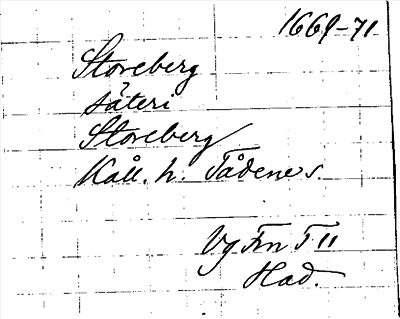 1669-71
Storeberg
säteri
Storeberg
Kåll. h. Tådene s.
Vg Frn T II
Had.